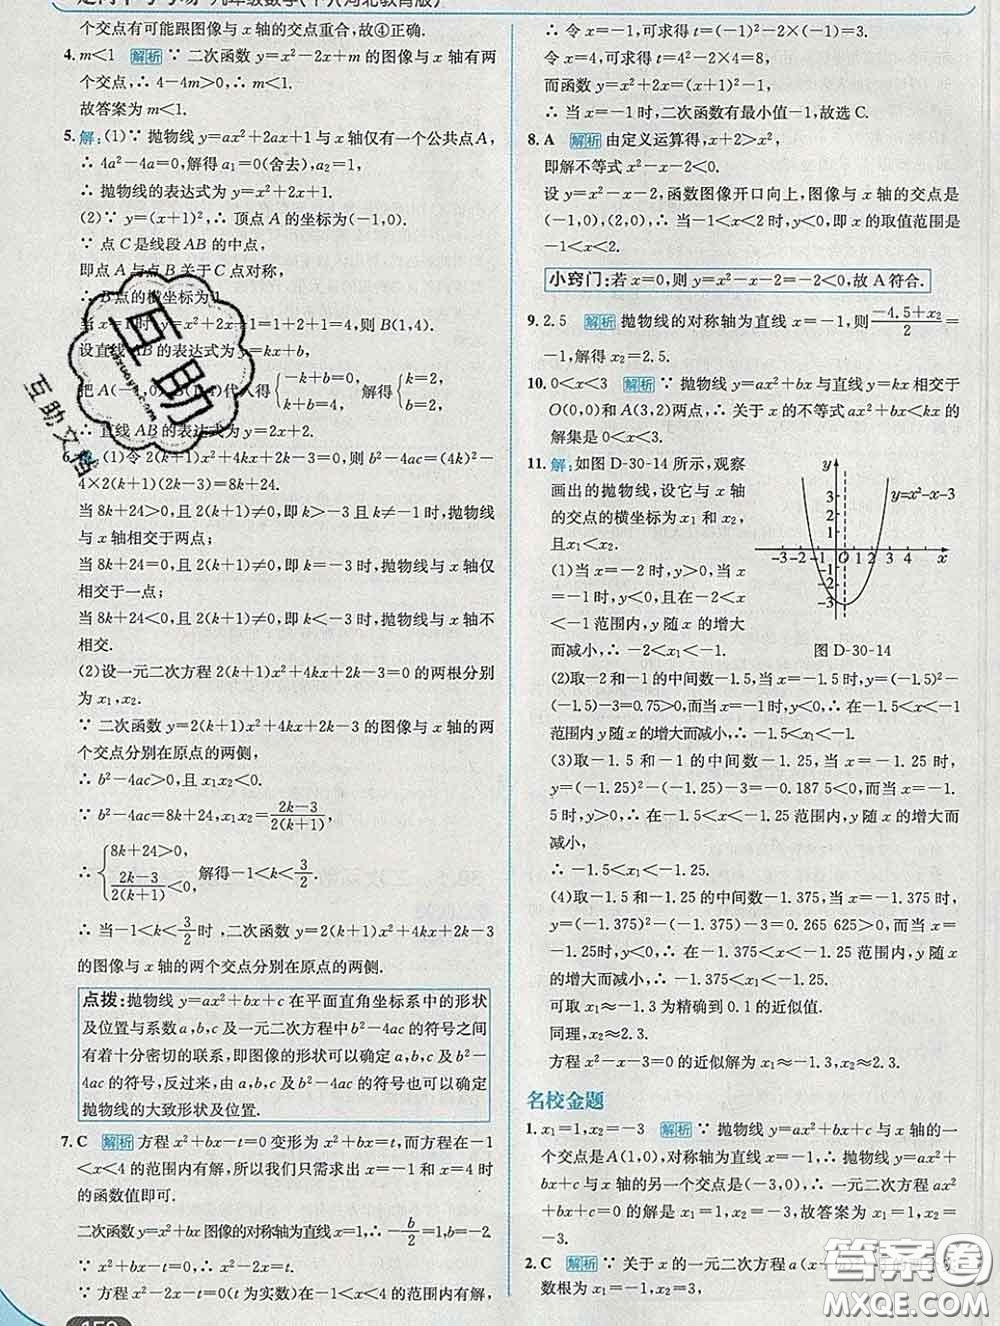 个交点有可能跟图像与x轴的交点重合,故④正确.
4. m<1 解析 ∵ 二次函数 y=x²-2x+m 的图像与 x 轴有两
个交点,∴ 4-4m>0,解得 m<1.
故答案为 m<1.
5. 解:(1)∵ 抛物线 y=ax²+2ax+1 与 x 轴仅有一个公共点 A,
∴ 4a²-4a=0,解得 a₁=0(舍去),a₂=1,
∴ 抛物线的表达式为 y=x²+2x+1.
(2)∵ y=(x+1)²,∴ 顶点 A 的坐标为(-1,0).
∵ 点 C 是线段 AB 的中点,
即点 A 与点 B 关于 C 点对称,
∴ B 点的横坐标为 1.
当 x=1 时,y=x²+2x+1=1+2+1=4,则 B(1,4).
设直线 AB 的表达式为 y=kx+b,
把 A(-1,0),B(1,4)代入得 {-k+b=0, k+b=4, 解得{k=2, b=2,
∴ 直线 AB 的表达式为 y=2x+2.
6. 解:(1)令 2(k+1)x²+4kx+2k-3=0,则 b²-4ac=(4k)²-
4×2(k+1)(2k-3)=8k+24.
当 8k+24>0,且 2(k+1)≠0,即 k>-3 且 k≠-1 时,抛物线
与 x 轴相交于两点;
当 8k+24=0,且 2(k+1)≠0,即 k=-3 时,抛物线与 x 轴仅
相交于一点;
当 8k+24<0,且 2(k+1)≠0,即 k<-3 时,抛物线与 x 轴不
相交.
(2)设一元二次方程 2(k+1)x²+4kx+2k-3=0 的两根分别
为 x₁,x₂.
∵ 二次函数 y=2(k+1)x²+4kx+2k-3 的图像与 x 轴的两
个交点分别在原点的两侧,
∴ b²-4ac>0,且 x₁x₂<0.
∵ b²-4ac=8k+24,x₁x₂=(2k-3)/(2(k+1)),
∴ {8k+24>0, (2k-3)/(2(k+1))<0, 解得-1<k<3/2.
∴ 当-1<k<3/2时,二次函数 y=2(k+1)x²+4kx+2k-3
的图像与 x 轴的两个交点分别在原点的两侧.
点拨:抛物线 y=ax²+bx+c 在平面直角坐标系中的形状
及位置与系数 a,b,c 及一元二次方程中 b²-4ac 的符号之间
有着十分密切的联系,即图像的形状可以确定 a,b,c 及 b²-
4ac 的符号,反过来,由 a,b,c 及 b²-4ac 的符号也可以确定
抛物线的大致形状及位置.
7. C 解析 方程 x²+bx-t=0 变形为 x²+bx=t,而方程在-1
<x<4 的范围内有解,所以我们只需求出 x=-1 和 x=4 时
的函数值即可.
二次函数 y=x²+bx 图像的对称轴为直线 x=1,∴ -b/2=1,b=-2.
∵ x²+bx-t=0,∴ x²-2x-t=0.
∵ 方程 x²-2x-t=0(t 为实数)在-1<x<4 的范围内有解,
∴ 令 x=-1,可求得 t=(-1)²-2×(-1)=3.
令 x=4,可求得 t=4²-2×4=8,
而函数 y=x²-2x=(x-1)²-1,
∴ 当 x=-1 时,二次函数有最小值-1,故选 C.
8. A 解析 由定义运算得,x+2>x²,
即解不等式 x²-x-2<0.
设 y=x²-x-2,函数图像开口向上,图像与 x 轴的交点是
(-1,0),(2,0),∴ 当-1<x<2 时,y<0,即 x 的取值范围是
-1<x<2.
小窍门:若 x=0,则 y=x²-x-2=-2<0,故 A 符合.
9. 2.5 解析 抛物线的对称轴为直线 x=-1,则(-4.5+x₂)/2
=-1,解得 x₂=2.5.
10. 0<x<3 解析 ∵ 抛物线 y=ax²+bx 与直线 y=kx 相交于
O(0,0)和 A(3,2)两点,∴ 关于 x 的不等式 ax²+bx<kx 的
解集是 0<x<3.
11. 解:如图 D-30-14 所示,观察
画出的抛物线,设它与 x 轴
的交点的横坐标为 x₁ 和 x₂,
且 x₁<x₂.
(1)当 x=-2 时,y>0,当 x
=-1 时,y<0,且在-2<x
≤-1 范围内,y 随 x 的增大
而减小,∴ -2<x₁<-1.
y
3
2
1
-3 -2 -1 O 1 2 3 4 x
-1
-2
-3
y=x²-x-3
图 D-30-14
(2)取-2 和-1 的中间数-1.5,当 x=-1.5 时,y=(-1.5)²-
(-1.5)-3=0.75>0,而当 x=-1 时,y<0,在-1.5<x<-1
范围内 y 随 x 的增大而减小,∴ -1.5<x₁<-1.
(3)取-1.5 和-1 的中间数-1.25,当 x=-1.25 时,
y=(-1.25)²-(-1.25)-3=-0.187 5<0,而当 x=-1.
5 时,y>0,∴ 在-1.5<x<-1.25 范围内,y 随 x 的增大而
减小,
∴ -1.5<x₁<-1.25.
(4)取-1.5 和-1.25 的中间数-1.375,当 x=-1.375 时,
y=(-1.375)²-(-1.375)-3=0.265 625>0,而当 x=
-1.25 时,y<0,∴ 在-1.375<x<-1.25 范围内 y 随 x 的
增大而减小,∴ -1.375<x₁<-1.25.
可取 x₁≈-1.3 为精确到 0.1 的近似值.
同理,x₂≈2.3.
方程 x²-x-3=0 的近似解为 x₁≈-1.3,x₂≈2.3.
名校金题
1. x₁=1,x₂=-3 解析 ∵ 抛物线 y=ax²+bx+c 与 x 轴的一
个交点是 A(1,0),对称轴为直线 x=-1,∴ 抛物线 y=ax²+
bx+c 与 x 轴的另一个交点是(-3,0),∴ 一元二次方程 ax²
+bx+c=0 的解是 x₁=1,x₂=-3,故答案为 x₁=1,x₂=
-3.
2. C 解析 ∵ 关于 x 的一元二次方程 a(x+
数根为 x₁=-1,x₂=3,
互助
互助文档
答案圈
MXQE.COM